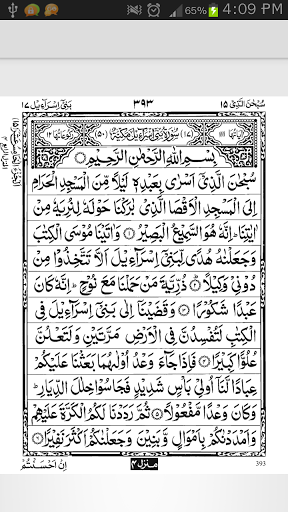 65% 4:09 PM
سُبْحٰنَ الَّذِيْۤ ۱۵ ۳۹۳ بَنِيْۤ اِسْرَآءِيْل ۱۷
اٰيَاتُهَا ۱۱۱ (۱۷) سُوْرَةُ بَنِيْۤ اِسْرَآءِيْلَ مَكِّيَّةٌ (۵۰) رُكُوْعَاتُهَا ۱۲
بِسْمِ اللّٰهِ الرَّحْمٰنِ الرَّحِيْمِ
سُبْحٰنَ الَّذِيْۤ اَسْرٰى بِعَبْدِهٖ لَيْلًا مِّنَ الْمَسْجِدِ الْحَرَامِ
اِلَى الْمَسْجِدِ الْاَقْصَا الَّذِيْ بٰرَكْنَا حَوْلَهٗ لِنُرِيَهٗ مِنْ
اٰيٰتِنَا ؕ اِنَّهٗ هُوَ السَّمِيْعُ الْبَصِيْرُ ۝ وَاٰتَيْنَا مُوْسَى الْكِتٰبَ
وَجَعَلْنٰهُ هُدًى لِّبَنِيْۤ اِسْرَآءِيْلَ اَلَّا تَتَّخِذُوْا مِنْ
دُوْنِيْ وَكِيْلًا ۝ ذُرِّيَّةَ مَنْ حَمَلْنَا مَعَ نُوْحٍ ؕ اِنَّهٗ كَانَ
عَبْدًا شَكُوْرًا ۝ وَقَضَيْنَاۤ اِلٰى بَنِيْۤ اِسْرَآءِيْلَ فِي
الْكِتٰبِ لَتُفْسِدُنَّ فِي الْاَرْضِ مَرَّتَيْنِ وَلَتَعْلُنَّ
عُلُوًّا كَبِيْرًا ۝ فَاِذَا جَآءَ وَعْدُ اُوْلٰىهُمَا بَعَثْنَا عَلَيْكُمْ
عِبَادًا لَّنَاۤ اُولِيْ بَاْسٍ شَدِيْدٍ فَجَاسُوْا خِلٰلَ الدِّيَارِ ؕ
وَكَانَ وَعْدًا مَّفْعُوْلًا ۝ ثُمَّ رَدَدْنَا لَكُمُ الْكَرَّةَ عَلَيْهِمْ
وَاَمْدَدْنٰكُمْ بِاَمْوَالٍ وَّبَنِيْنَ وَجَعَلْنٰكُمْ اَكْثَرَ نَفِيْرًا ۝
اِنْ اَحْسَنْتُمْ منزل ۴ 393